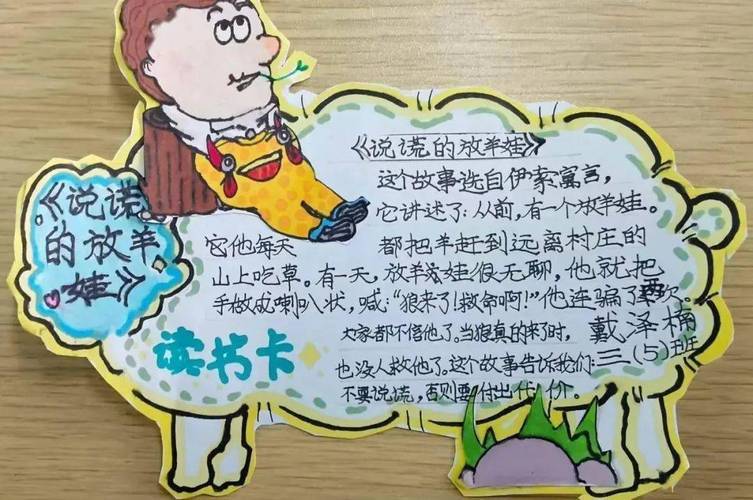 《说谎
的放羊
娃》
《说谎的放羊娃》
这个故事选自伊索寓言，
它讲述了：从前，有一个放羊娃。
它他每天都把羊赶到远离村庄的
山上吃草。有一天，放羊娃很无聊，他就把
手做成喇叭状，喊：“狼来了！救命啊！”他连骗了两次。
大家都不信他了。当狼真的来了时，
也没人救他了。这个故事告诉我们：
不要说谎，否则要付出代价。
读书卡
戴泽楠
三（5）班